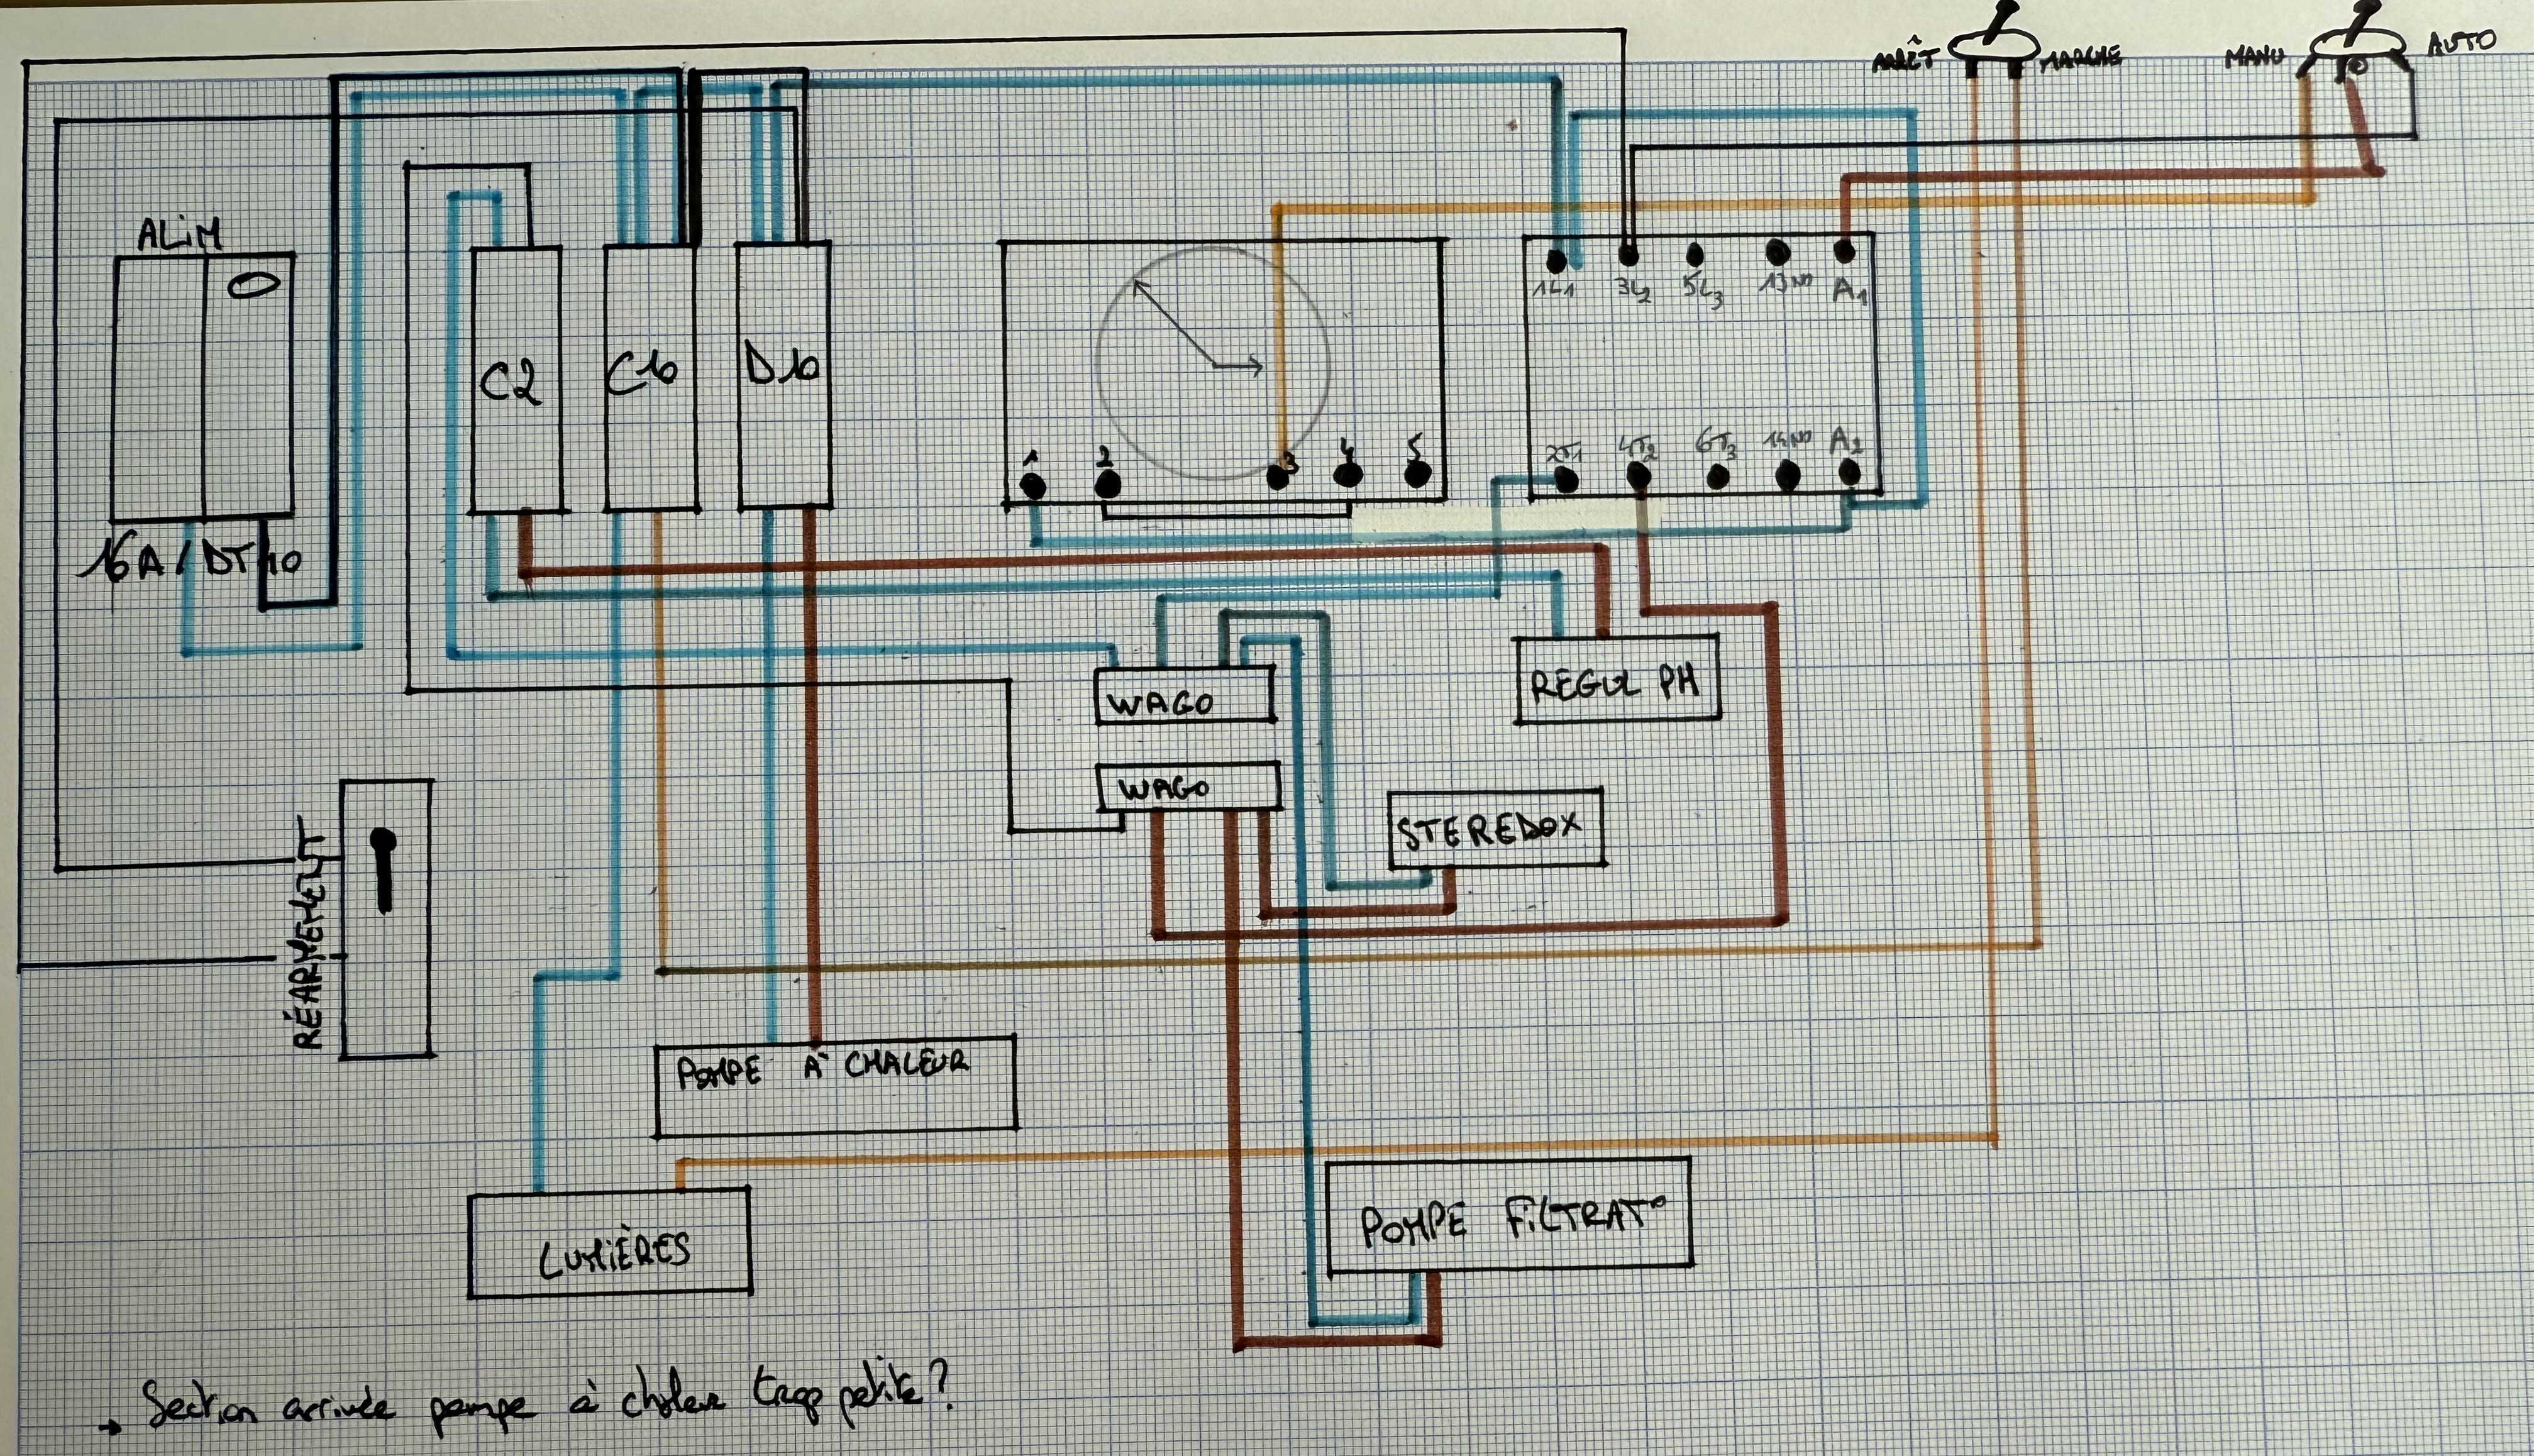 ARRÊT MARCHE
MANU AUTO
ALIM
16A/DT40
C2
C16
D16
1 2 3 4 5
1L1 3L2 5L3 13NO A1
2T1 4T2 6T3 14NO A2
WAGO
WAGO
REGUL PH
STEREDOX
RÉARMEMENT
POMPE À CHALEUR
LUMIÈRES
POMPE FILTRAT°
→ Section arrivée pompe à chaleur trop petite?